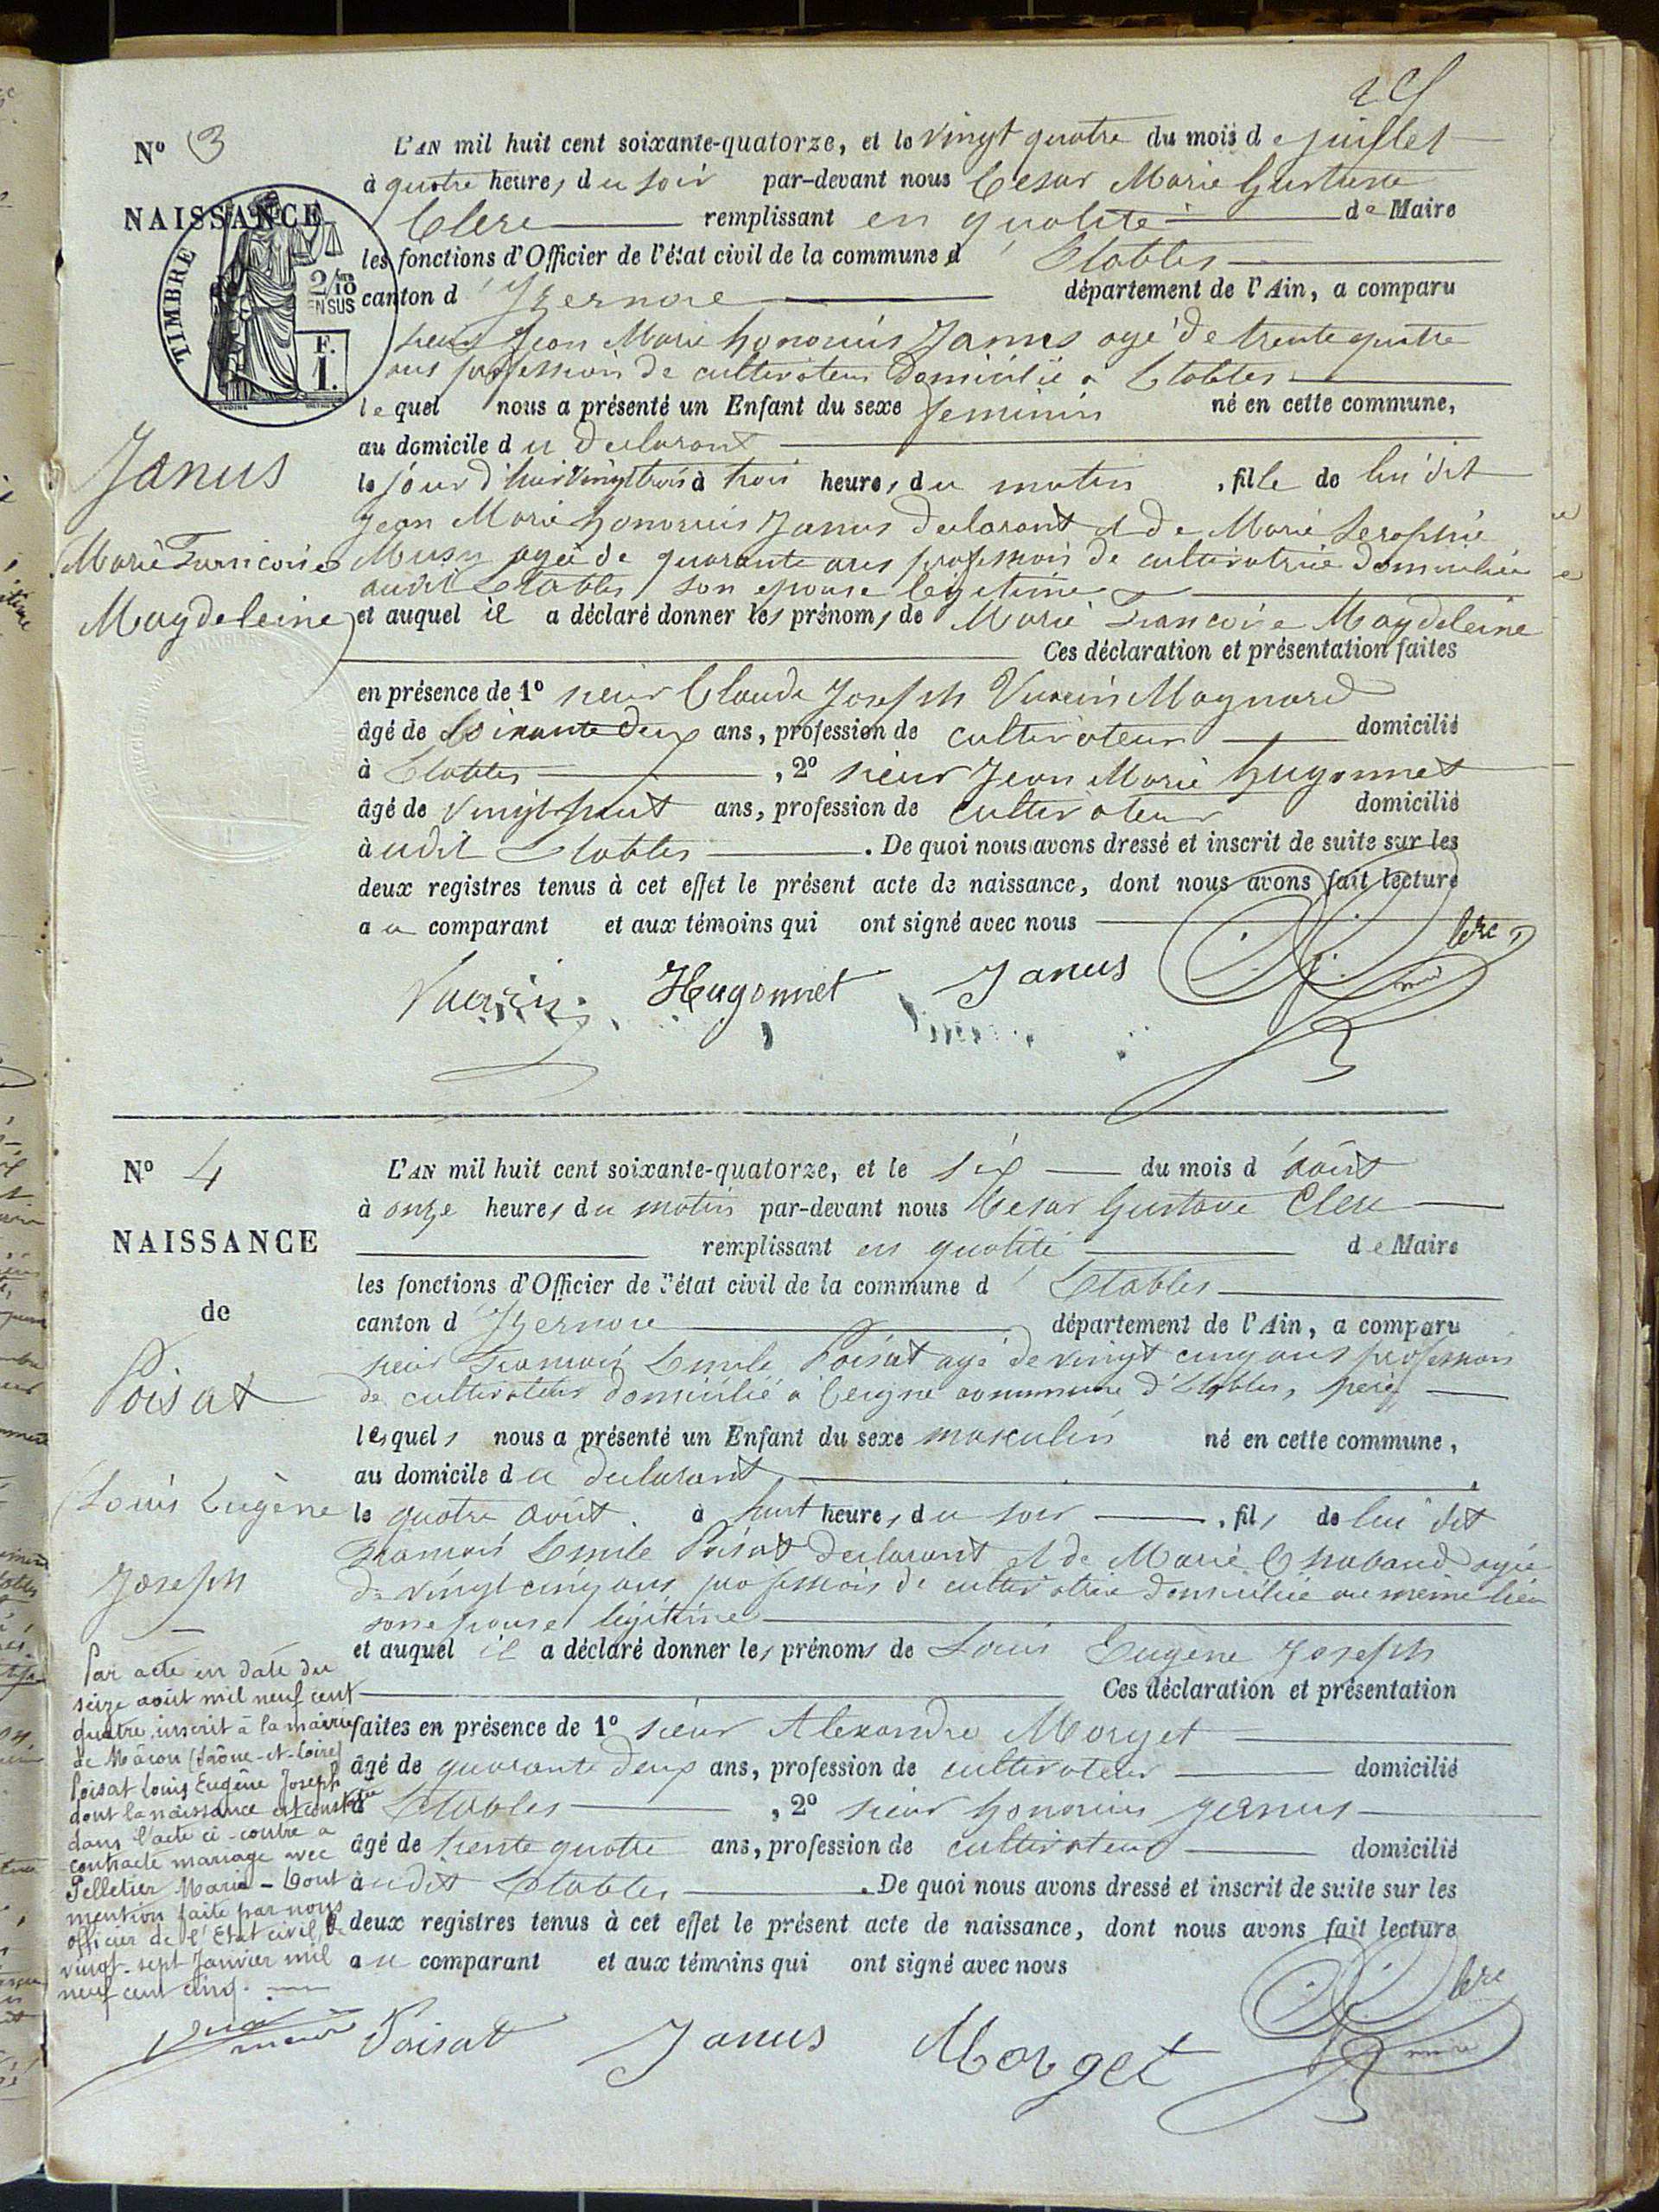 N° 3
NAISSANCE
de
TIMBRE
2/10
EN SUS
F.
1.
Janus
Marie Francoise
Magdeleine
L'AN mil huit cent soixante-quatorze, et le vingt quatre du mois de juillet
à quatre heures du soir par-devant nous Cesar Marie Gustave
Clerc remplissant en qualité de Maire
les fonctions d'Officier de l'état civil de la commune d' Etables
canton d' Izernore département de l'Ain, a comparu
sieur Jean Marie honorius Janus agé de trente quatre
ans profession de cultivateur domicilié a Etables
lequel nous a présenté un Enfant du sexe feminin né en cette commune,
au domicile du declarant
le jour d'hier vingt trois à trois heures du matin, fille de lui dit
Jean Marie honorius Janus declarant et de Marie Seraphie
agée de quarante ans profession de cultivatrice domiciliée
audit Etables son epouse legitime
et auquel il a déclaré donner les prénoms de Marie Francoise Magdeleine
Ces déclaration et présentation faites
en présence de 1° sieur Claude Joseph Vuarin Maynard
âgé de soixante deux ans, profession de cultivateur domicilié
à Etables, 2° sieur Jean Marie hugonnet
âgé de vingt huit ans, profession de cultivateur domicilié
à udit Etables. De quoi nous avons dressé et inscrit de suite sur les
deux registres tenus à cet effet le présent acte de naissance, dont nous avons fait lecture
au comparant et aux témoins qui ont signé avec nous
Vuarin Hugonnet Janus Clerc
N° 4
NAISSANCE
de
Poisat
Louis Eugène
Joseph
L'AN mil huit cent soixante-quatorze, et le six du mois d'août
à onze heures du matin par-devant nous Cesar Gustave Clerc
remplissant en qualité de Maire
les fonctions d'Officier de l'état civil de la commune d' Etables
canton d' Izernore département de l'Ain, a comparu
sieur Francois Emile Poisat agé de vingt cinq ans profession
de cultivateur domicilié à Ceigne commune d'Etables,
lesquels nous a présenté un Enfant du sexe masculin né en cette commune,
au domicile du declarant
le quatre août à huit heures du soir, fils de lui dit
Francois Emile Poisat declarant et de Marie Chaband agée
de vingt cinq ans profession de cultivatrice domiciliée au même lieu
son epouse légitime
et auquel il a déclaré donner les prénoms de Louis Eugène Joseph
Ces déclaration et présentation
faites en présence de 1° sieur Alexandre Morget
âgé de quarante deux ans, profession de cultivateur domicilié
à Etables, 2° sieur honorius Janus
âgé de trente quatre ans, profession de cultivateur domicilié
à udit Etables. De quoi nous avons dressé et inscrit de suite sur les
deux registres tenus à cet effet le présent acte de naissance, dont nous avons fait lecture
au comparant et aux témoins qui ont signé avec nous
Poisat Janus Morget Clerc
Par acte en date du
seize août mil neuf cent
quatre, inscrit à la mairie
de Mâcon (Saône-et-Loire)
Poisat Louis Eugène Joseph
dont la naissance est constatée
dans l'acte ci-contre a
contracté mariage avec
Pelletier Marie - Dont
mention faite par nous
officier de l'Etat civil, le
vingt-sept Janvier mil
neuf cent cinq.